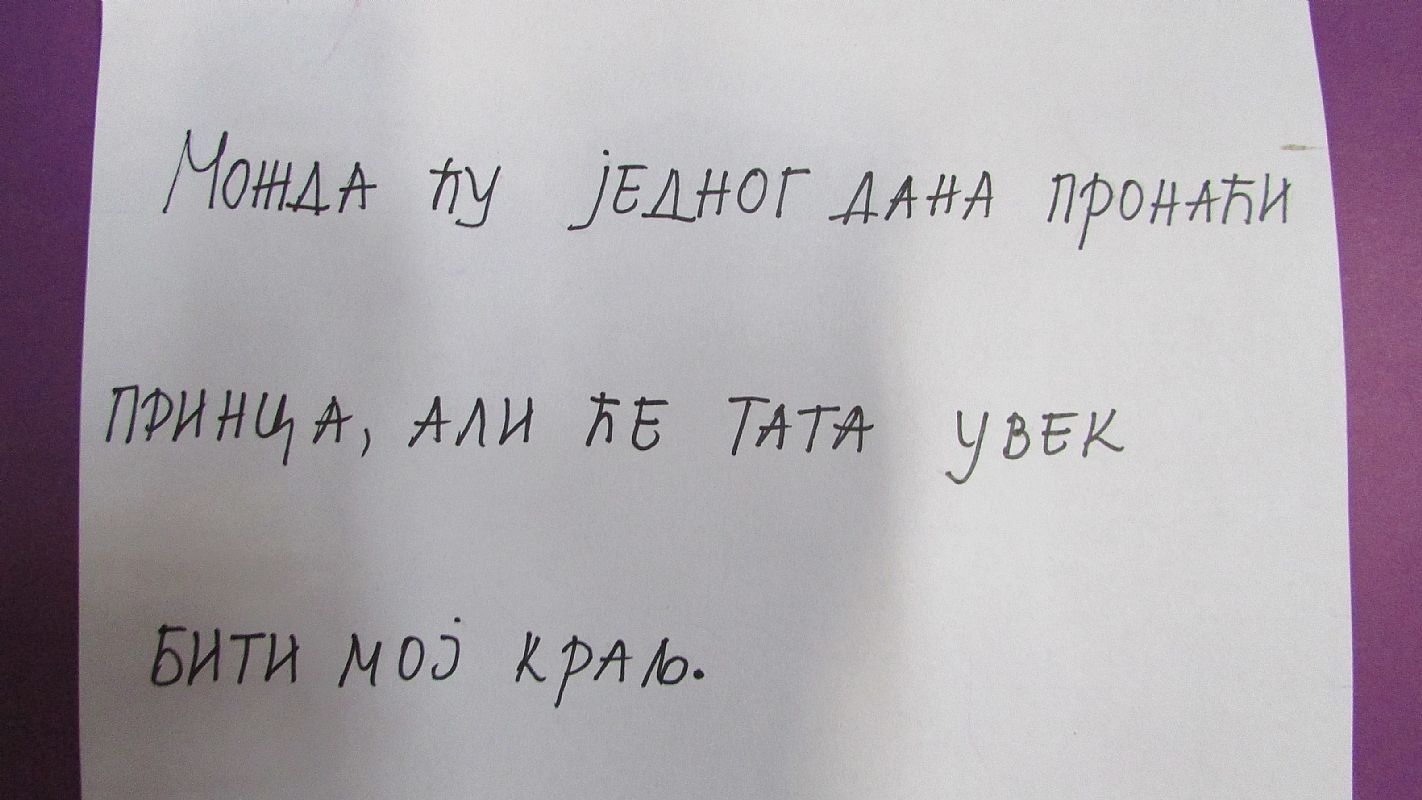 Можда ћу једног дана пронаћи
принца, али ће тата увек
бити мој краљ.